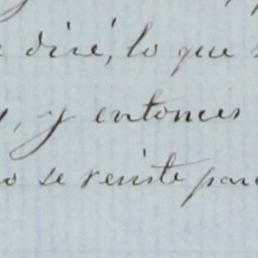 diré, lo que
, y entonces
se reviste para